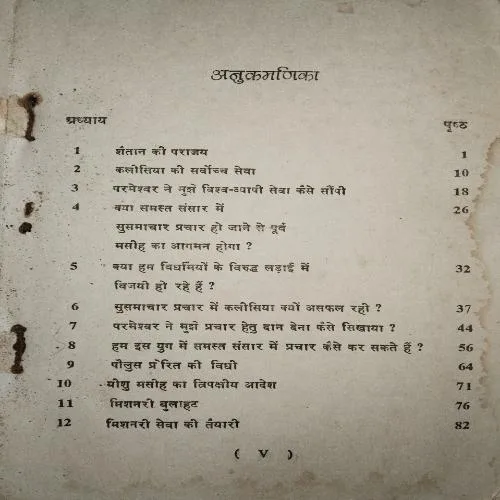 अनुक्रमणिका
अध्याय पृष्ठ
1 शैतान की पराजय 1
2 कलीसिया की सर्वोच्च सेवा 10
3 परमेश्वर ने मुझे विश्व-व्यापी सेवा कैसे सौंपी 18
4 क्या समस्त संसार में 26
सुसमाचार प्रचार हो जाने से पूर्व
मसीह का आगमन होगा ?
5 क्या हम विधर्मियों के विरुद्ध लड़ाई में 32
विजयी हो रहे हैं ?
6 सुसमाचार प्रचार में कलीसिया क्यों असफल रही ? 37
7 परमेश्वर ने मुझे प्रचार हेतु दान देना कैसे सिखाया ? 44
8 हम इस युग में समस्त संसार में प्रचार कैसे कर सकते हैं ? 56
9 पौलुस प्रेरित की विधी 64
10 यीशु मसीह का त्रिपक्षीय आदेश 71
11 मिशनरी बुलाहट 76
12 मिशनरी सेवा की तैयारी 82
( V )